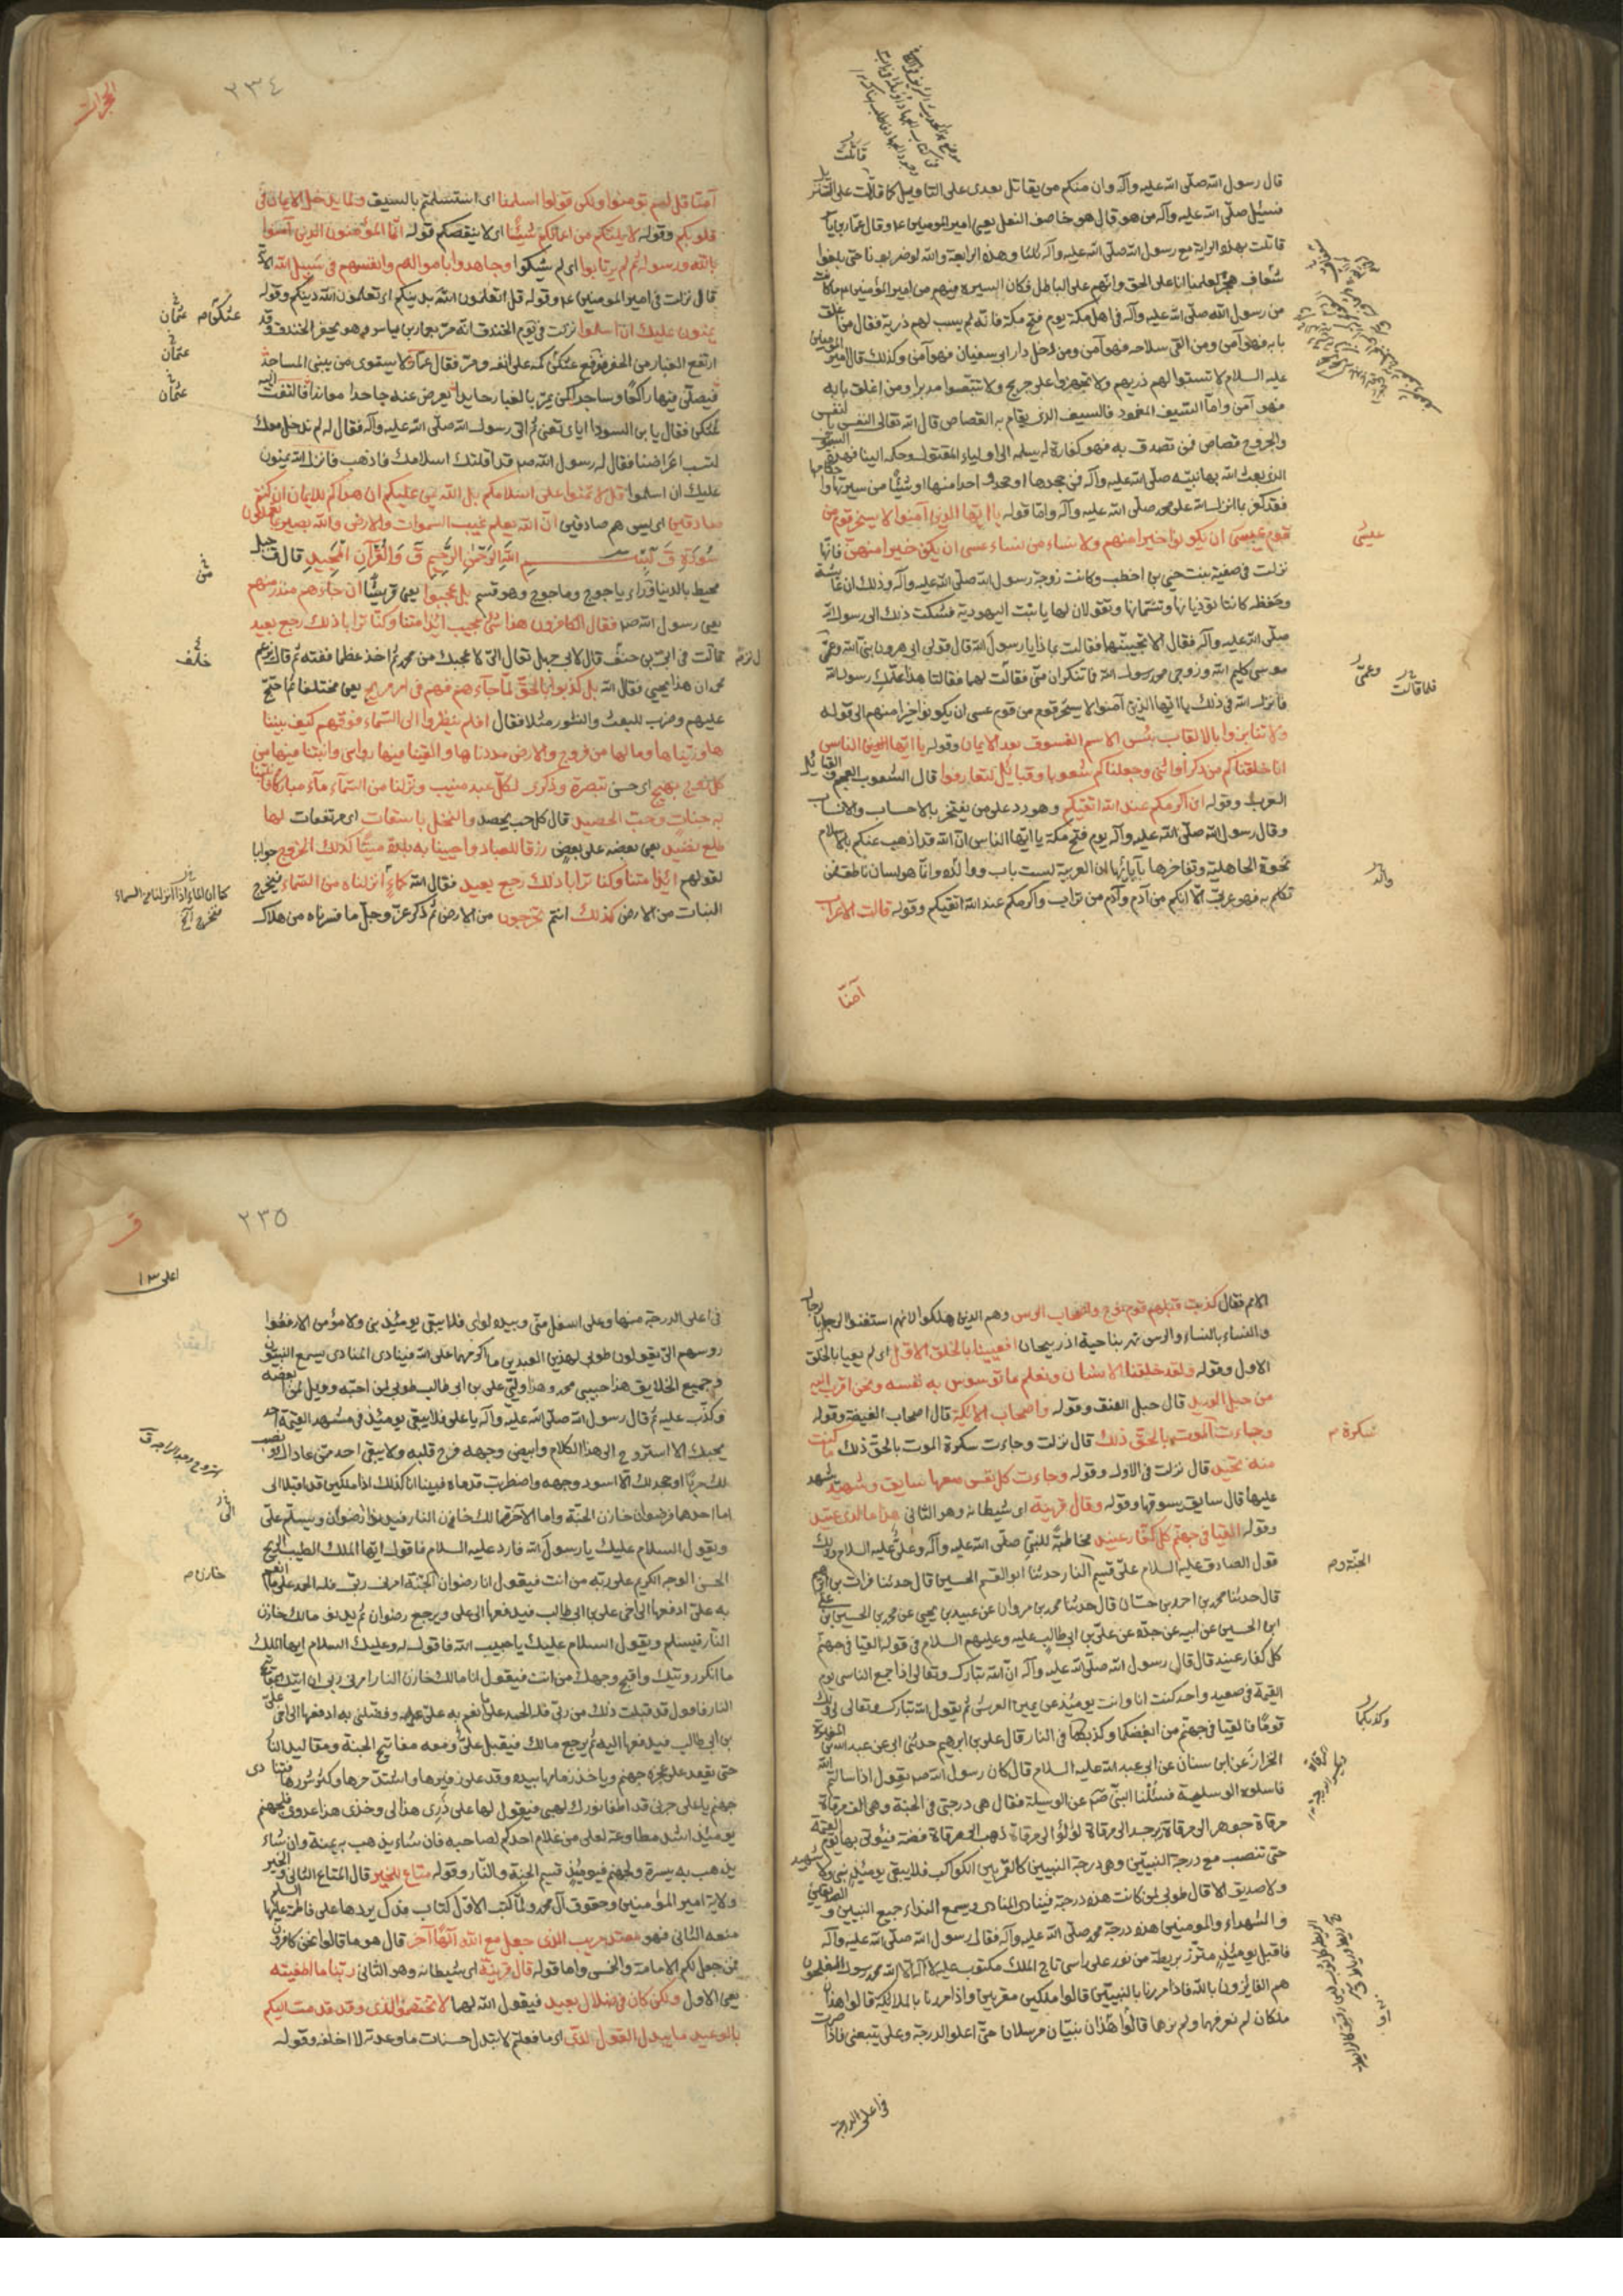 قال رسول الله صلّى الله عليه وآله وان منكم من يقاتل بعدى على التاويل كما قاتلت على التنزيل
فسئل صلّى الله عليه وآله من هو قال هو خاصف النعل يعنى امير المومنين ع وقال عمار بن ياسر
قاتلت بهذه الراية مع رسول الله صلّى الله عليه وآله ثلثا وهذه الرابعة والله لو ضربونا حتى بلغوا
شعاف هجر لعلمنا انا على الحق وانهم على الباطل فكان السيرة فيهم من امير المؤمنين م ما كانت
من رسول الله صلّى الله عليه وآله فى اهل مكة يوم فتح مكة فانه لم يسب لهم ذرية فقال من اغلق
بابه فهو آمن ومن القى سلاحه فهو آمن ومن دخل دار ابى سفيان فهو آمن وكذلك قال امير المومنين
عليه السلام لا تسبوا لهم ذريهم ولا تجهزوا على جريح ولا تتبعوا مدبرا ومن اغلق بابه
فهو آمن واما السيف المغمود فالسيف الذى يقام به القصاص قال الله تعالى النفس بالنفس
والجروح قصاص فمن تصدق به فهو كفارة له فسله الى اولياء المقتول وحكمه الينا فهذه السيوف
الذى بعث الله بها نبيّه صلّى الله عليه وآله فمن جحدها او جحد احدا منها او شيئا من سيرتها واحكامها
فقد كفر بما انزل الله على محمد صلّى الله عليه وآله واما قوله يا ايها الذين آمنوا لا يسخر قوم من
قوم عيسى ان يكونوا خيرا منهم ولا نساء من نساء عسى ان يكن خيرا منهنّ فانّها
نزلت فى صفية بنت حيى بن اخطب وكانت زوجة رسول الله صلّى الله عليه وآله وذلك ان عايشة
وحفصة كانتا تؤذيانها وتشتمانها وتقولان لها يا بنت اليهودية فشكت ذلك الى رسول الله
صلّى الله عليه وآله فقال الا تجيبينهما فقالت بماذا يا رسول الله قال قولى ابى هرون نبى الله وعمّى
موسى كليم الله وزوجى محمد رسول الله فما تنكران منّى فقالت لهما فقالتا هذا علّمك رسول الله
فانزل الله فى ذلك يا ايها الذين آمنوا لا يسخر قوم من قوم عسى ان يكونوا خيرا منهم الى قوله
ولا تنابزوا بالالقاب بئس الاسم الفسوق بعد الايمان وقوله يا ايها الناس
انا خلقناكم من ذكر وانثى وجعلناكم شعوبا وقبائل لتعارفوا قال الشعوب العجم والقبائل
العرب وقوله ان اكرمكم عند الله اتقيكم وهو رد على من يفتخر بالاحساب والانساب
وقال رسول الله صلّى الله عليه وآله يوم فتح مكة يا ايها الناس انّ الله قد اذهب عنكم بالاسلام
نخوة الجاهلية وتفاخرها بآبائها ان العربية ليست باب ووالده وانما هو لسان ناطق فمن
تكلم به فهو عربىّ الا انكم من آدم وآدم من تراب واكرمكم عند الله اتقيكم وقوله قالت الاعراب
آمنّا
قاتلت
عيسى
وعمّى
فلما قالت
والد
٢٣٤
الحجرات
آمنا قل لم تومنوا ولكن قولوا اسلمنا اى استسلمتم بالسيف ولما يدخل الايمان فى
قلوبكم وقوله لا يلتكم من اعمالكم شيئا اى لا ينقصكم قوله انّما المؤمنون الذين آمنوا
بالله ورسوله ثم لم يرتابوا اى لم يشكوا وجاهدوا باموالهم وانفسهم فى سبيل الله الآية
قال نزلت فى امير المومنين ع وقوله قل اتعلمون الله بدينكم اى تعلمون الله دينكم وقوله
يمنون عليك ان اسلموا نزلت فى يوم الخندق انّه مرّ بعمار بن ياسر وهو يحفر الخندق وقد
ارتفع الغبار من الحفر فوضع عثكن كمه على انفه ومرّ فقال عمار لا يستوى من يبنى المساجدا
فيصلى فيها راكعا وساجدا كمن يمرّ بالغبار حايدا يعرض عنه جاحدا معاندا فالتفت اليه
عثكن فقال يا بن السودا اياى تعنى ثم اتى رسول الله صلّى الله عليه وآله فقال له لم ندخل معك
لتسب اعراضنا فقال له رسول الله ص قد اقلتك اسلامك فاذهب فانزل الله يمنون
عليك ان اسلموا قل لا تمنوا على اسلامكم بل الله يمن عليكم ان هداكم للايمان ان كنتم
صادقين اى ليس هم صادقين انّ الله يعلم غيب السموات والارض والله بصير بما تعملون
سورة ق بسم الله الرحمن الرحيم ق والقرآن المجيد قال ق جبل
محيط بالدنيا وراء ياجوج وماجوج وهو قسم بل عجبوا يعنى قريشا ان جاءهم منذر منهم
يعنى رسول الله ص فقال الكافرون هذا شئ عجيب ائذا متنا وكنّا ترابا ذلك رجع بعيد
قال نزلت فى ابىّ بن خلف قال لابى جهل تعال الىّ لاعجبك من محمد ثم اخذ عظما ففته ثم قال يزعم
محمد ان هذا يحيى فقال الله بل كذبوا بالحقّ لما جاءهم فهم فى امر مريج يعنى مختلفا ثم احتج
عليهم وضرب للبعث والنشور مثلا فقال افلم ينظروا الى السّماء فوقهم كيف بنينا
ها وزيناها وما لها من فروج والارض مددناها والقينا فيها رواسى وانبتنا فيها من
كل زوج بهيج اى حسن تبصرة وذكرى لكل عبد منيب ونزلنا من السّماء ماء مباركا فانبتنا
به جنات وحبّ الحصيد قال كل حب يحصد والنخل باسقات اى مرتفعات لها
طلع نضيد يعنى بعضه على بعض رزقا للعباد واحيينا به بلدة ميتا كذلك الخروج جوابا
لقولهم ائذا متنا وكنا ترابا ذلك رجع بعيد فقال الله كماء انزلناه من السّماء فيخرج
النبات من الارض كذلك انتم تخرجون من الارض ثم ذكر عزّ وجلّ ما فسرناه من هلاك
عثكن م
عثمان
عثمان
عثمان
خلف
كما ان الماء اذا انزلناه من السماء
فيخرج الخ
الامم فقال كذبت قبلهم قوم نوح واصحاب الرس وهم الذين هلكوا لانهم استغنوا الرجال بالرجال
والنساء بالنساء والرس نهر بناحية اذربيجان افعيينا بالخلق الاوّل اى لم يعيا بالخلق
الاول وقوله ولقد خلقنا الانسان ونعلم ما توسوس به نفسه ونحن اقرب اليه
من حبل الوريد قال حبل العنق وقوله واصحاب الايكة قال اصحاب الغيضة وقوله
وجاءت الموت بالحقّ ذلك قال نزلت وجاءت سكرة الموت بالحقّ ذلك ما كنت
منه تحيد قال نزلت فى الاول وقوله وجاءت كل نفس معها سايق وشهيد يشهد
عليها قال سايق يسوقها وقوله وقال قرينه اى شيطانه وهو الثانى هذا ما لدى عتيد
وقوله القيا فى جهنم كل كفار عنيد مخاطبة للنبى صلّى الله عليه وآله وعلى عليه السلام وذلك
قول الصادق عليه السلام علىّ قسيم النار حدثنا ابو القسم الحسينى قال حدثنا فرات بن ابراهيم
قال حدثنا محمد بن احمد بن حسان قال حدثنا محمد بن مروان عن عبيد بن يحيى عن محمد بن الحسين بن على
ابن الحسين عن ابيه عن جدّه عن علىّ بن ابى طالب عليه وعليهم السلام فى قوله القيا فى جهنم
كل كفار عنيد قال قال رسول الله صلّى الله عليه وآله انّ الله تبارك وتعالى اذا جمع الناس يوم
القيمة فى صعيد واحد كنت انا وانت يومئذ عن يمين العرش ثم يقول الله تبارك وتعالى لى ولك
قوما فالقيا فى جهنم من ابغضكما وكذبكما فى النار قال على بن ابرهيم حدثنى ابى عن عبد الله بن المغيرة
الخزاز عن ابن سنان عن ابى عبد الله عليه السلام قال كان رسول الله ص يقول اذا سالتم الله
فاسلوه الوسيلة فسئلنا النبىّ ص عن الوسيلة فقال هى درجتى فى الجنة وهى الف مرقاة
مرقاة جوهر الى مرقاة زبرجد الى مرقاة لؤلؤ الى مرقاة ذهب الى مرقاة فضة فيؤتى بها يوم القيمة
حتى تنصب مع درجة النبيّين وهى درجة النبيين كالقمر بين الكواكب فلا يبقى يومئذ نبى ولا شهيد
ولا صديق الا قال طوبى لمن كانت هذه درجته فينادى المنادى ويسمع النداء جميع النبيين والصديقين
والشهداء والمومنين هذه درجة محمد صلّى الله عليه وآله فقال رسول الله صلّى الله عليه وآله
فاقبل يومئذ متزرا بريطة من نور على راسى تاج الملك مكتوب عليه لا اله الا الله محمد رسول الله المفلحون
هم الفايزون بالله فاذا مررنا بالنبيّين قالوا ملكين مقربين واذا مررنا بالملائكة قالوا هذان
ملكان لم نعرفهما ولم نرهما قالوا هذان نبيّان مرسلان حتى اعلو الدرجة وعلى يتبعنى فاذا صرت
فى اعلى الدرجة
سكرة م
الجنة و م
وكذبكما
٢٣٥
ق
اعلى ١٣
فى اعلى الدرجة منها وعلى اسفل منّى وبيده لوائى فلا يبقى يومئذ نبى ولا مؤمن الا رفعوا
روسهم الىّ يقولون طوبى لهذين العبدين ما اكرمهما على الله فينادى المنادى يسمع النبيّون
وجميع الخلايق هذا حبيبى محمد وهذا وليّى على بن ابى طالب طوبى لمن احبّه وويل لمن ابغضه
وكذّب عليه ثم قال رسول الله صلّى الله عليه وآله يا على فلا يبقى يومئذ فى مشهد القيمة احد
يحبك الا استروح الى هذا الكلام وابيض وجهه وفرح قلبه ولا يبقى احد ممّن عاداك ونصب
لك حربا او جحد لك الا اسود وجهه واضطربت قدماه فبينا انا كذلك اذا ملكين قد اقبلا الى
اما احدهما فرضوان خازن الجنّة واما الآخر مالك خازن النار فيدنو رضوان ويسلم علىّ
ويقول السلام عليك يا رسول الله فارد عليه السلام فاقول ايها الملك الطيب الريح
الحسن الوجه الكريم على ربّه من انت فيقول انا رضوان الجنّة امرنى ربّى فله الحمد على ما انعم
به علىّ ادفعها الى اخى على بن ابى طالب فيدفعها الى على ويرجع رضوان ثم يدنو مالك خازن
النار فيسلم ويقول السلام عليك يا حبيب الله فاقول له وعليك السلام ايها الملك
ما انكر رويتك واقبح وجهك من انت فيقول انا مالك خازن النار امرنى ربى ان آتيك بمفاتيح
النار فاقول قد قبلت ذلك من ربّى فله الحمد على ما نعم به علىّ وفضّلنى به ادفعها الى اخى علىّ
بن ابى طالب فيدفعها اليه ثم يرجع مالك فيقبل علىّ ومعه مفاتيح الجنة ومقاليد النار
حتى يقعد على عجزة جهنم وياخذ زمامها بيده وقد علا زفيرها واشتدّ حرها وكثر شررها فتنادى
جهنم يا على جزنى قد اطفا نورك لهبى فيقول لها على ذرى هذا لى وخذى هذا عدوى فلجهنم
يومئذ اشد مطاوعة لعلى من غلام احدكم لصاحبه فان شاء يذهب به يمنة وان شاء
يذهب به يسرة ولجهنم فيومئذ قسيم الجنة والنّار وقوله مناع للخير قال المناع الثانى والخير
ولاية امير المؤمنين وحقوق آل محمد ولما كتب الاوّل كتاب فدك يردها على فاطمة عليها السلم
منعه الثانى فهو معتد مريب الذى جعل مع الله الها آخر قال هو ما قالوا نحن كافرون
بمن جعل لكم الامامة والخمس واما قوله قال قرينه اى شيطانه وهو الثانى ربّنا ما اطغيته
يعنى الاول ولكن كان فى ضلال بعيد فيقول الله لهما لا تختصموا لدى وقد قدمت اليكم
بالوعيد ما يبدل القول لدىّ اى ما فعلتم لا تبدل حسنات ما وعدته لا اخلفه وقوله
خازن م